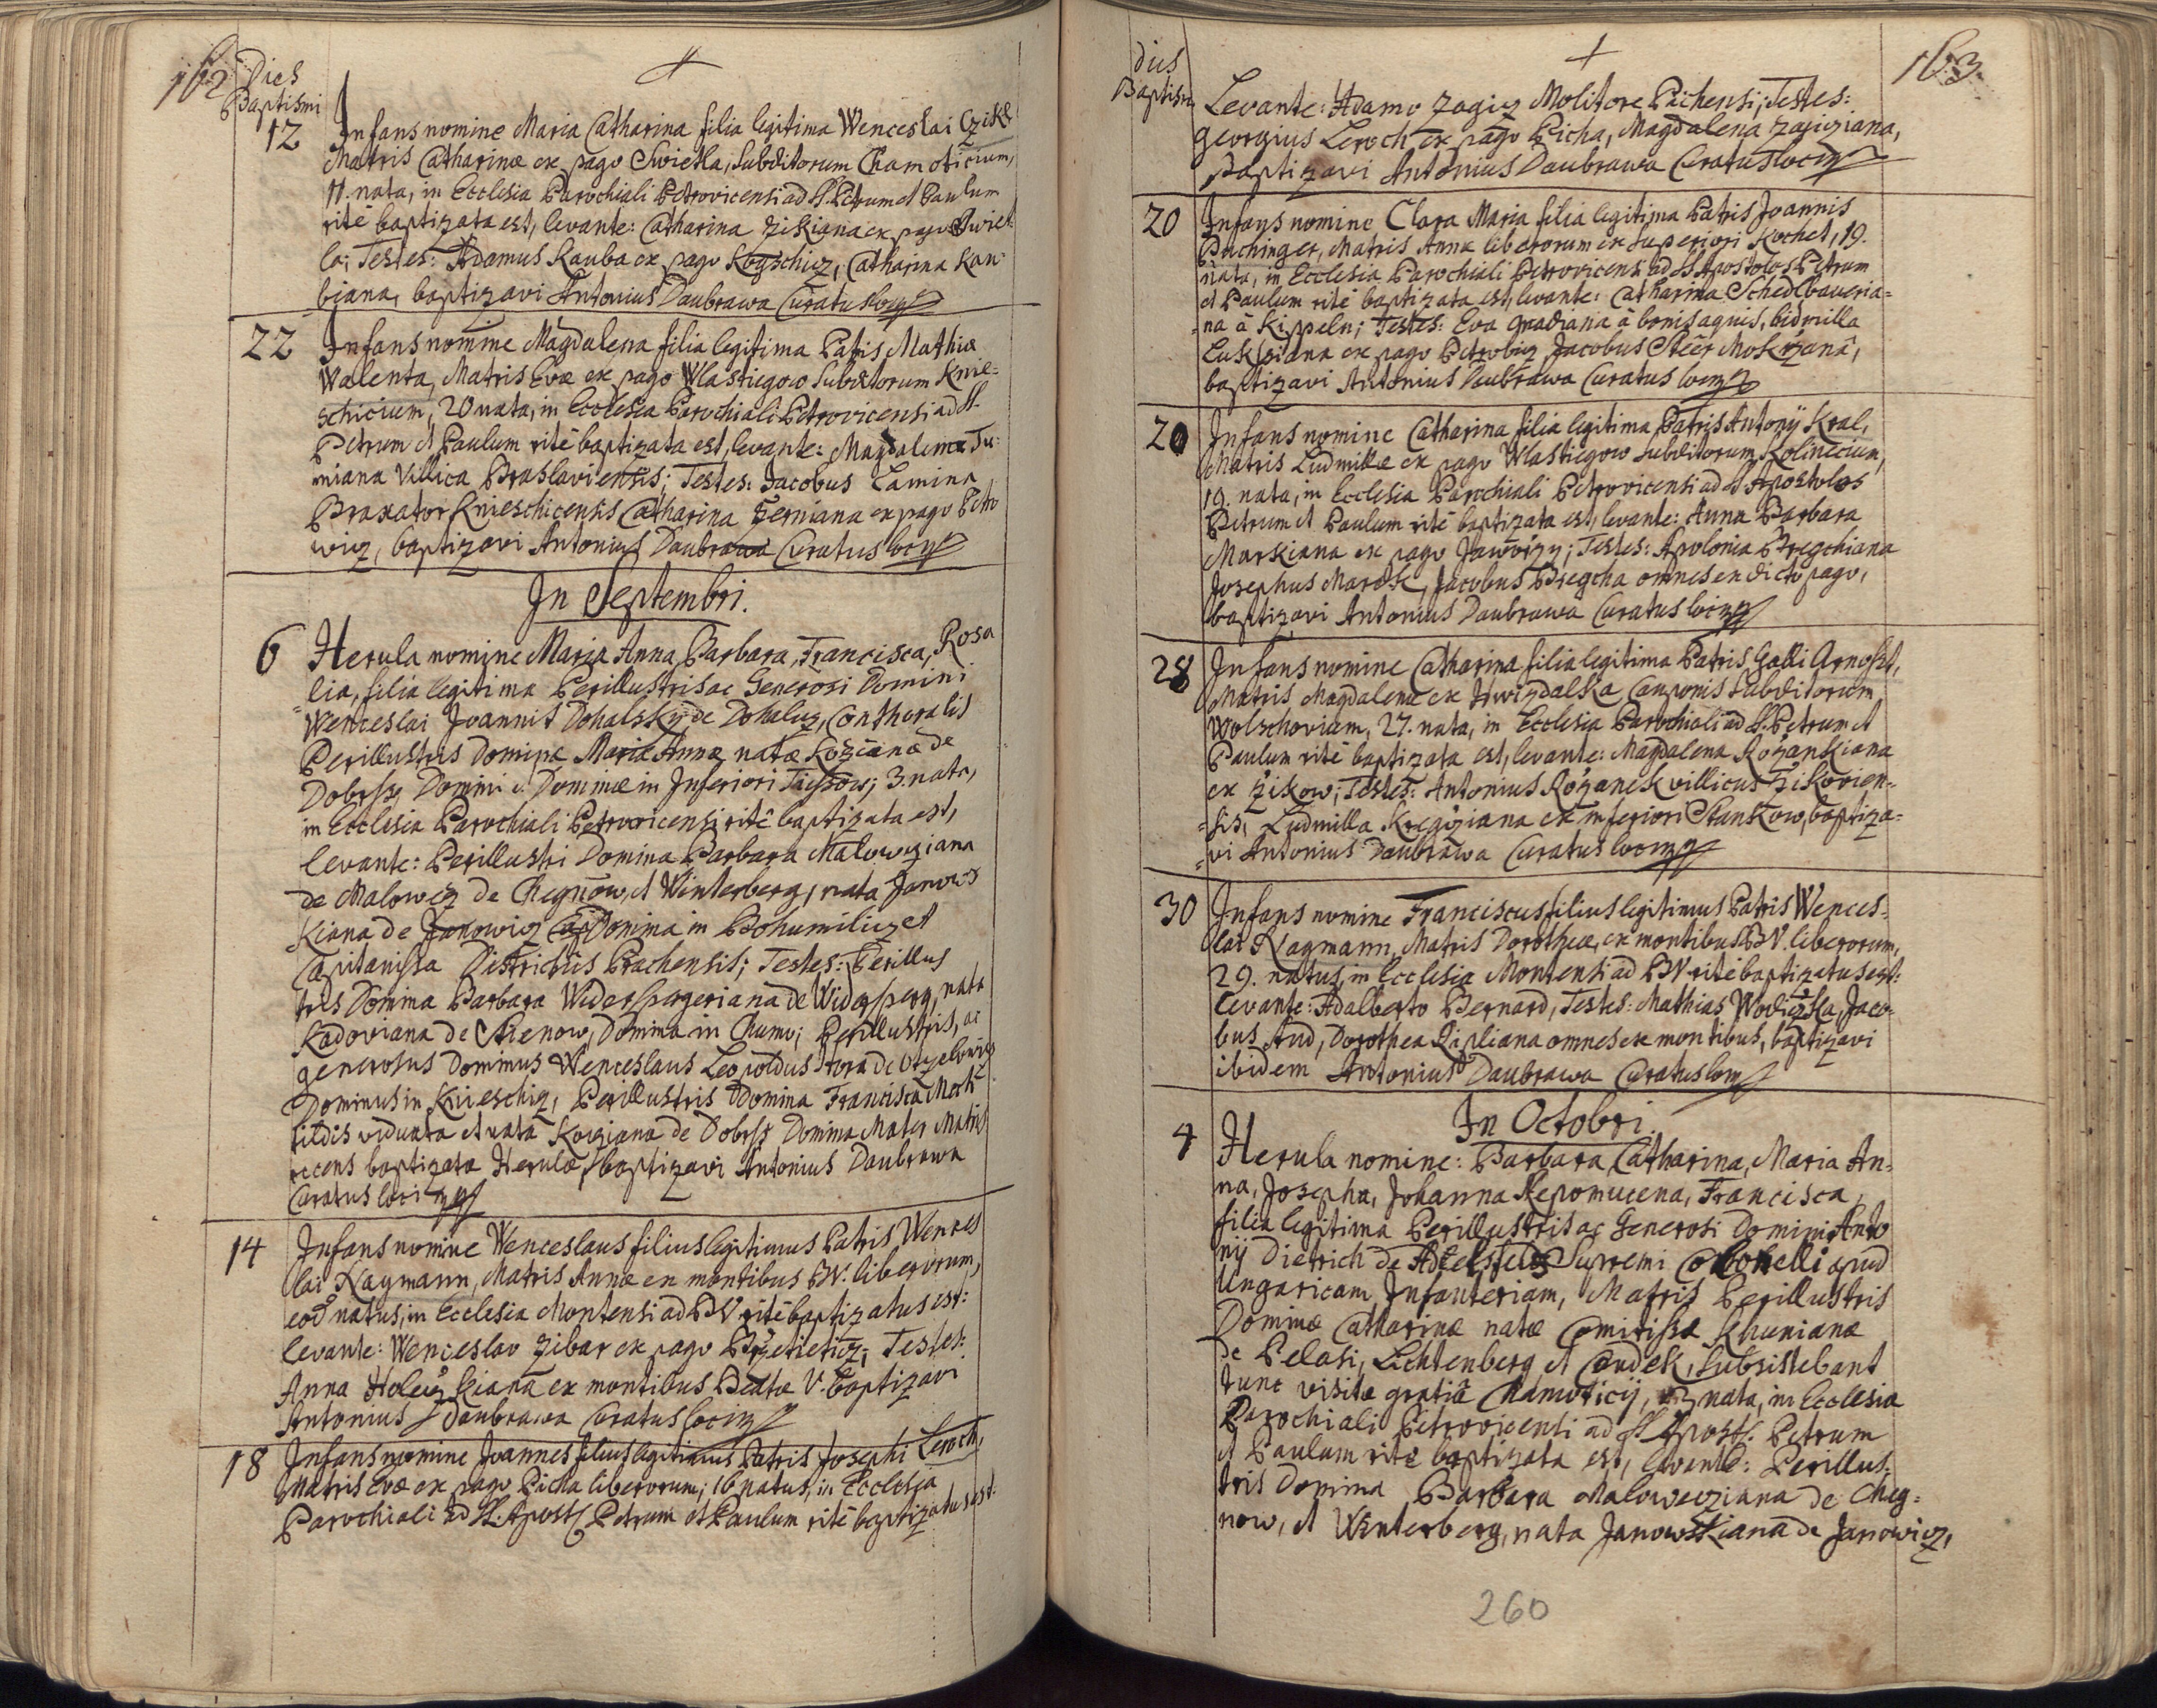 162 Dies
Baptismi
12 Infans nomine Maria Catharina filia legitima Wenceslai Czike
Matris Catharinæ ex pago Swietla, Subditorum Chamoticium,
11. nata, in Ecclesia Parochiali Petrovicensi ad SS. Petrum et Paulum
ritè baptizata est, levante: Catharina Zikiana ex pago Swiet-
la; Testes: Adamus Kauba ex pago Kogschicz, Catharina Kau-
biana, baptizavi Antonius Daubrawa Curatus loci
22 Infans nomine Magdalena filia legitima Patris Mathiæ
Walenta, Matris Evæ ex pago Wlastiegow Subditorum Knie-
schicium, 20 nata, in Ecclesia Parochiali Petrovicensi ad SS.
Petrum et Paulum ritè baptizata est, levante: Magdalena Tu-
miana Villica Braslaviensis; Testes: Jacobus Lamina
Braxator Knieschicensis Catharina Zerniana ex pago Petro
wicz, baptizavi Antonius Daubrawa Curatus loci
In Septembri.
6 Herula nomine Maria Anna, Barbara, Francisca, Rosa
lia, filia legitima Perillustris ac Generosi Domini
Wenceslai Joannis Dohalsky de Dohalicz, Conthoralis
Perillustris Dominæ Mariæ Annæ natæ Kozianæ de
Dobrss Domini et Dominæ in Inferiori Tiessow; 3. nata,
in Ecclesia Parochiali Petrovicensi ritè baptizata est,
levante: Perillustri Domina Barbara Malowcziana
de Malowicz de Chegnow, et Winterberg, nata Janows
kiana de Janowicz Domina in Bohumilicz et
Capitanissa Districtûs Prachensis; Testes: Perillus
tris Domina Barbara Widerspergeriana de Widersperg, nata
Kadoviana de Chenow, Domina in Chumo; Perillustris, ac
generosus Dominus Wenceslaus Leopoldus Hora de Otzelowicz
Dominus in Knieschicz, Perillustris Domina Francisca Mech-
tildis viduata et nata Koziana de Dobrss Domina Mater Matris
recens baptizatæ Herulæ, baptizavi Antonius Daubrawa
Curatus loci
14 Infans nomine Wenceslaus filius legitimus Patris Wences
lai Nagmann, Matris Annæ ex montibus BV. liberorum,
eod natus, in Ecclesia Montensi ad BV ritè baptizatus est:
levante: Wenceslao Zibar ex pago Brzetieticz; Testes:
Anna Holeczkiana ex montibus Beatæ V. baptizavi
Antonius Daubrawa Curatus loci
18 Infans nomine Joannes filius legitimus Patris Josephi Leroch,
Matris Evæ ex pago Picha liberorum; 16 natus, in Ecclesia
Parochiali ad SS. Apost. Petrum et Paulum ritè baptizatus est:
dies 163.
Baptismi
Levante: Adamo Zagicz Molitore Pichensi; Testes:
Georgius Leroch ex pago Picha, Magdalena Zagicziana,
baptizavi Antonius Daubrawa Curatus loci
20 Infans nomine Clara Maria filia legitima Patris Joannis
Puchinger, Matris Annæ liberorum ex Superiori Kochet, 19.
nata, in Ecclesia Parochiali Petrovicensi ad SS Apostolos Petrum
et Paulum ritè baptizata est, levante: Catharina Schedlbaueria-
na à Kippeln; Testes: Eva Gradiana à bonis aquis, Lidmilla
Lukssiana ex pago Petrowicz Jacobus Steer Mokrzana,
baptizavi Antonius Daubrawa Curatus loci
20 Infans nomine Catharina filia legitima Patris Antonij Kral,
Matris Ludmillæ ex pago Wlastiegow subditorum Kolinecium,
19. nata, in Ecclesia Parochiali Petrovicensi ad SS Apostolos
Petrum et Paulum ritè baptizata est, levante: Anna Barbara
Marskiana ex pago Jaworzy; Testes: Apolonia Bregchiana
Josephus Marssk, Jacobus Bregcha omnes ex dicto pago,
baptizavi Antonius Daubrawa Curatus loci
28 Infans nomine Catharina filia legitima Patris Galli Arnosst,
Matris Magdalenæ ex Hwizdalka Cauponis Subditorum
Wolschoviam, 27. nata, in Ecclesia Parochiali ad SS. Petrum et
Paulum ritè baptizata est, levante: Magdalena Rozankiana
ex Zikow; Testes: Antonius Rozanek villicus Zikovien-
sis, Ludmilla Kregcziana ex inferiori Stankow, baptiza-
vi Antonius Daubrawa Curatus loci
30 Infans nomine Franciscus filius legitimus Patris Wences-
lai Nagmann, Matris Dorotheæ, ex montibus BV. liberorum,
29. natus, in Ecclesia Montensi ad BV ritè baptizatus est:
levante: Adalberto Bernard, Testes: Mathias Wodiczka, Jaco-
bus And, Dorothea Lipliana omnes ex montibus, baptizavi
ibidem Antonius Daubrawa Curatus loci
In Octobri.
4 Herula nomine: Barbara, Catharina, Maria An-
na, Josepha, Johanna Nepomucena, Francisca,
filia legitima Perillustris ac Generosi Domini Anto
nij Dietrich de Adelsfeld Supremi Colonelli apud
Ungaricam Infanteriam, Matris Perillustris
Dominæ Catharinæ natæ Comitissæ Khunianæ
de Belasi, Lichtenberg et Gandek, subsistebant
tunc visitæ gratiâ Chamuticij, nata, in Ecclesia
Parochiali Petrovicensi ad SS Apost. Petrum
et Paulum ritè baptizata est, levante: Perillus-
tris Domina Barbara Malowecziana de Cheg-
now, et Winterberg, nata Janowskiana de Janowicz,
260